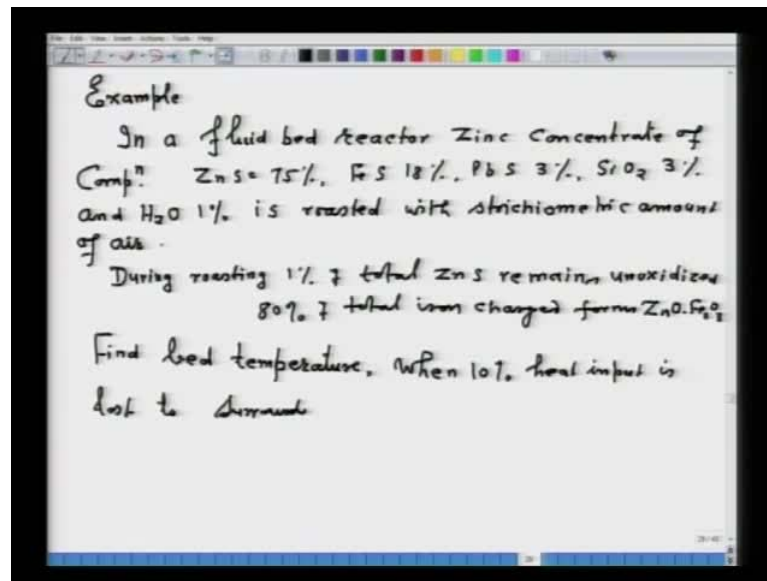 Example
In a fluid bed reactor Zinc Concentrate of
Compn. ZnS = 75%, FeS 18%, PbS 3%, SiO2 3%
and H2O 1% is roasted with stoichiometric amount
of air.
During roasting 1% of total ZnS remains unoxidized
80% of total iron charged forms ZnO.Fe2O3
Find bed temperature, When 10% heat input is
lost to surround